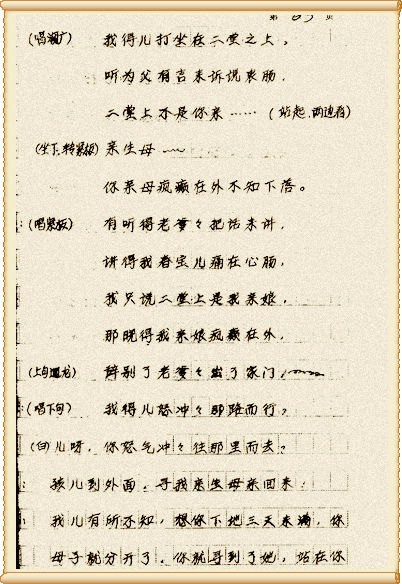 第 页
(唱湖广) 我得儿打坐在二堂之上，
听为父有言来诉说衷肠，
二堂上不是你亲…… (站起、两边看)
(坐下、转紧板) 亲生母
你亲母疯癫在外不知下落。
(唱紧板) 有听得老爹々把话来讲，
讲得我春生儿痛在心肠，
我只说二堂上是我亲娘，
那晓得我亲娘疯癫在外，
辞别了老爹々出了家门，
(唱下句) 我得儿怒冲々那路而行？
(白) 儿呀，你怒气冲々往那里而去？
孩儿到外面，寻我亲生母亲回来！
我儿有所不知，想你下地三天未满，你
母子就分开了，你就寻到了她，站在你